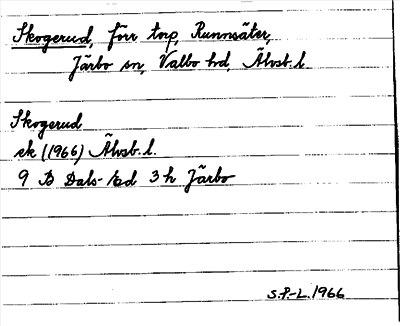 Skogerud, förr torp, Runnsäter,
Järbo sn, Valbo hd, Älvsb. l.
Skogerud
ek (1966) Älvsb. l.
9 B Dals-Ed 3 h Järbo
S.P.-L. 1966